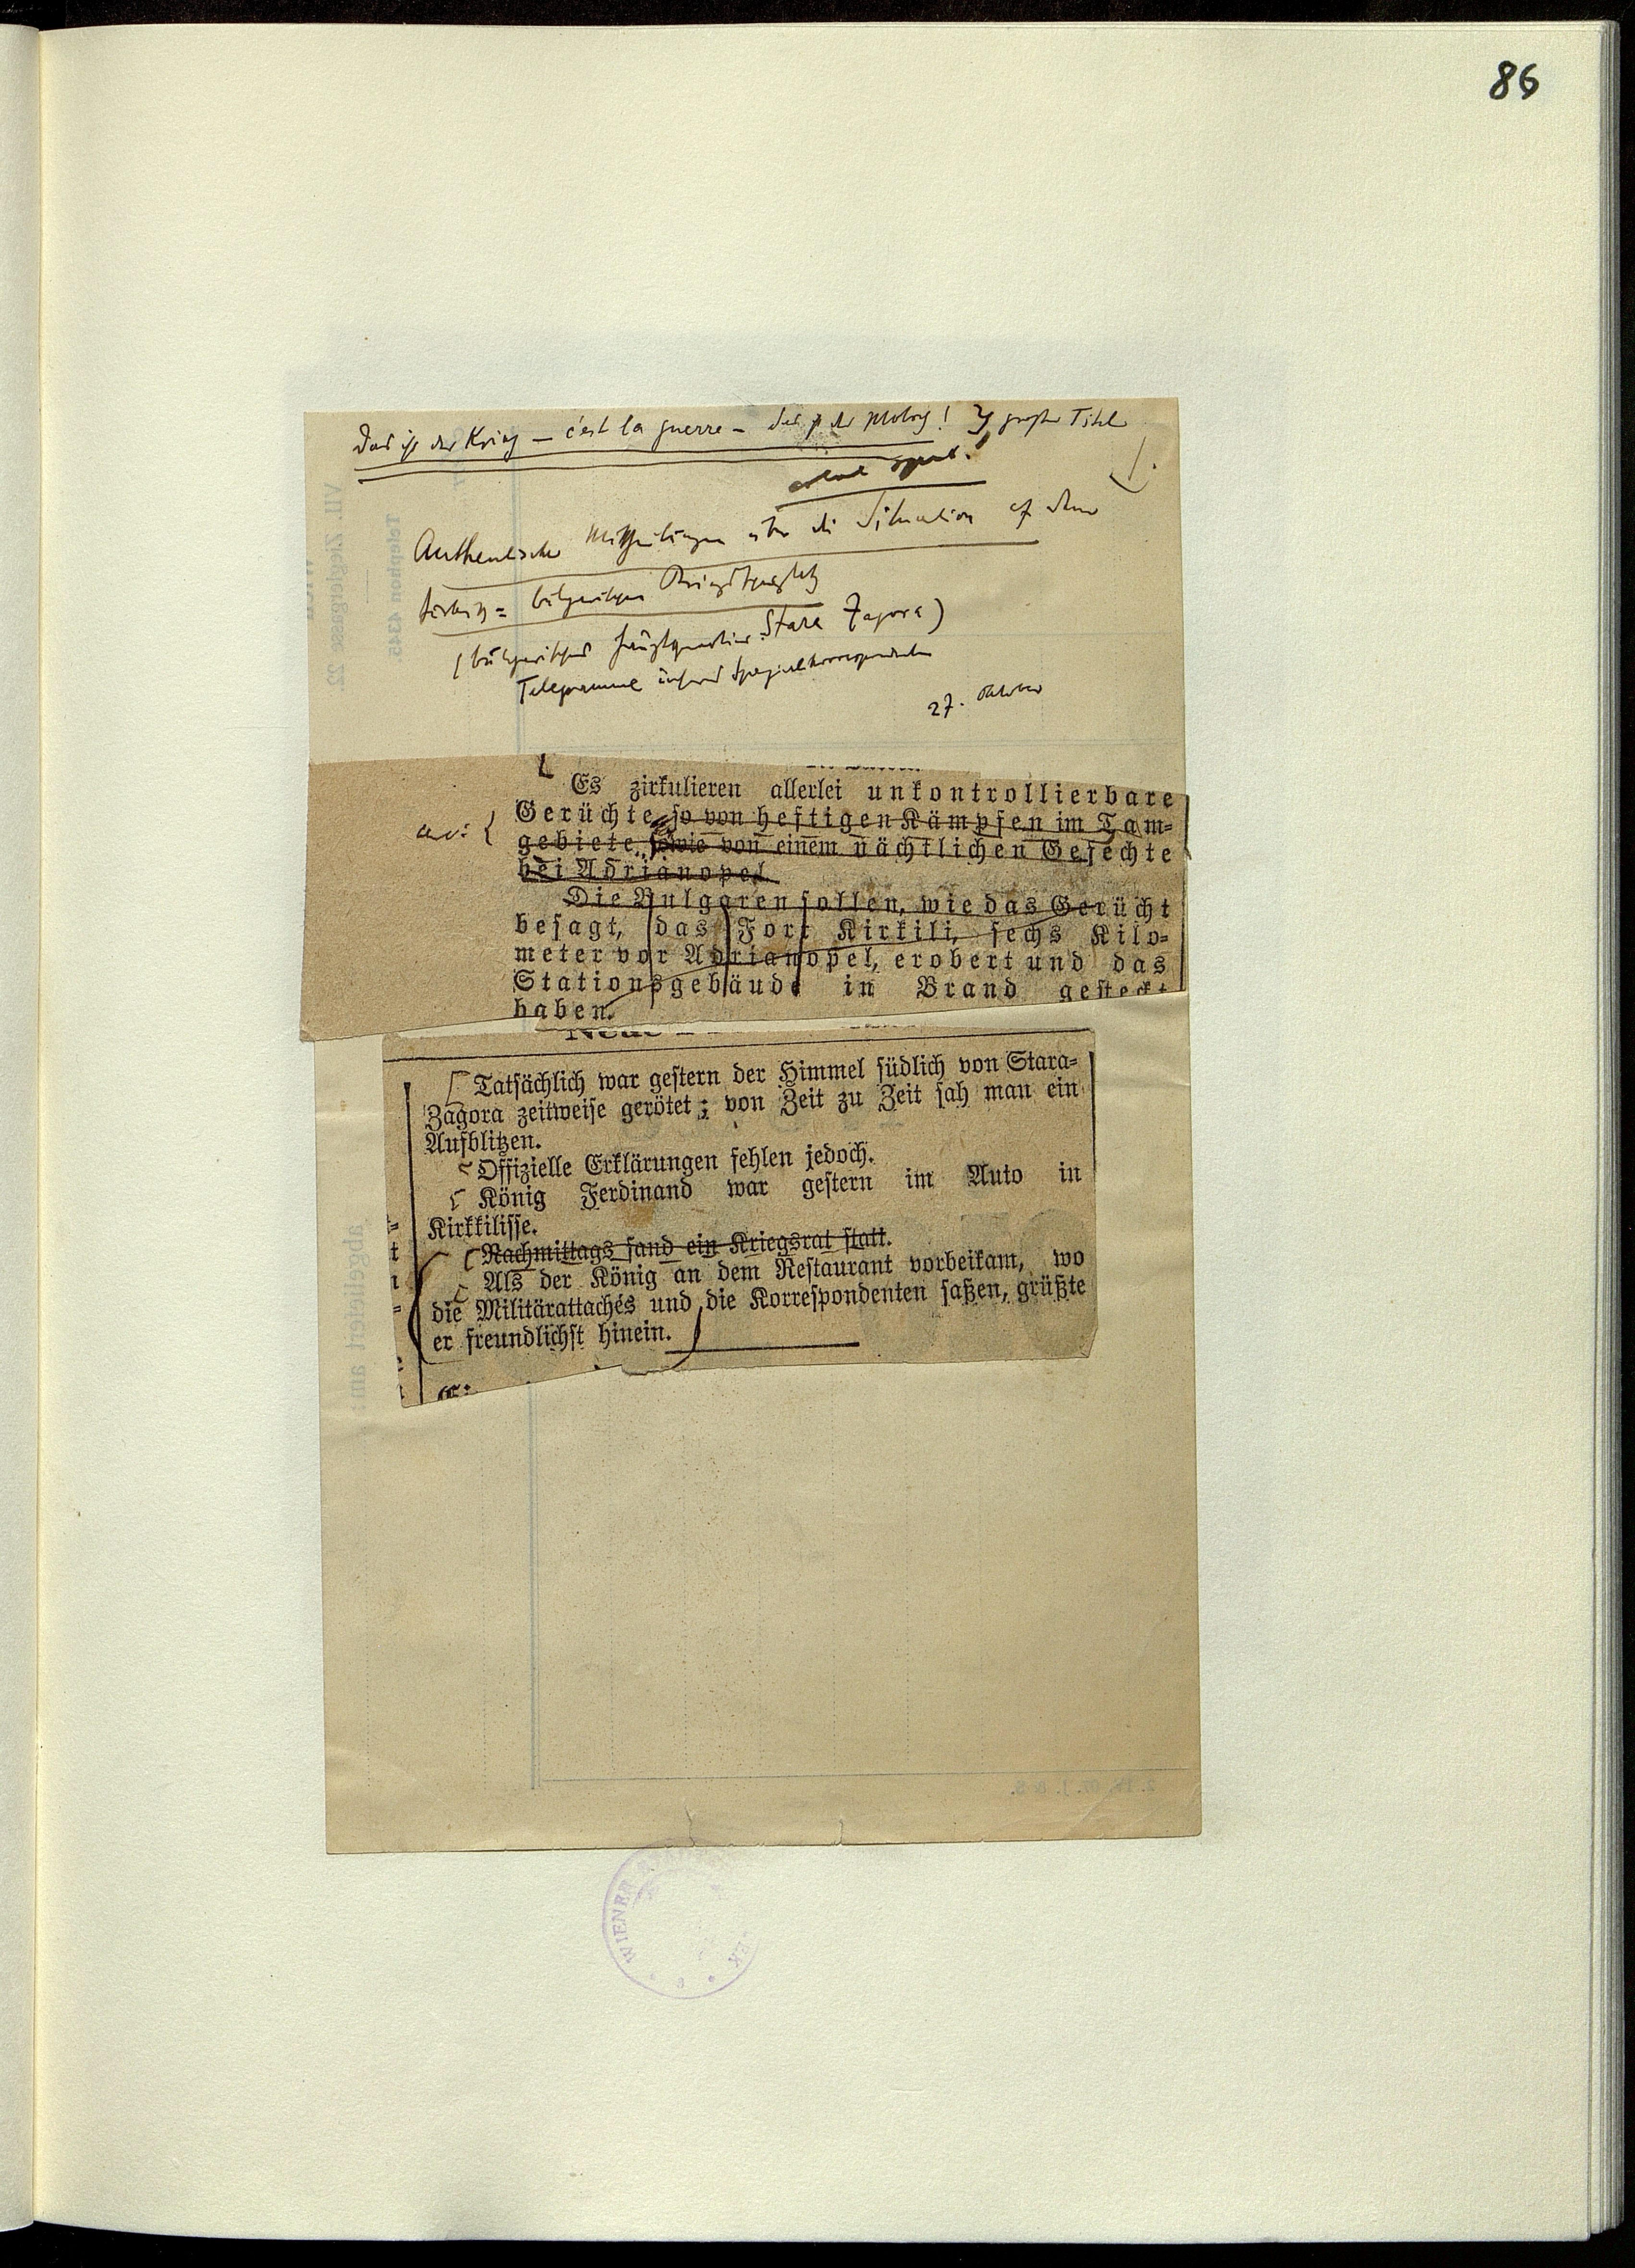 86
Das ist der Krieg — c'est la guerre — das ist der Moloch! großer Titel
Authentische Mittheilungen über die Situation auf dem
türkisch = bulgarischen Kriegsschauplatz
(bulgarisches Hauptquartier Stara Zagora)
Telegramme unseres Spezialkorrespondenten
27. Oktober
Es zirkulieren allerlei unkontrollierbare
Gerüchte, so von heftigen Kämpfen im Tam-
gebiete, sowie von einem nächtlichen Gefechte
bei Adrianopel.
Die Bulgaren sollen, wie das Gerücht
besagt, das Fort Kirkili, sechs Kilo-
meter vor Adrianopel, erobert und das
Stationsgebäude in Brand gesteckt
haben.
Tatsächlich war gestern der Himmel südlich von Stara-
Zagora zeitweise gerötet; von Zeit zu Zeit sah man ein
Aufblitzen.
Offizielle Erklärungen fehlen jedoch.
König Ferdinand war gestern im Auto in
Kirkkilisse.
Nachmittags fand ein Kriegsrat statt.
Als der König an dem Restaurant vorbeikam, wo
die Militärattachés und die Korrespondenten saßen, grüßte
er freundlichst hinein.
VII. Zieglergasse 22.
Telephon 4345.
abgeliefert am:
WIENER